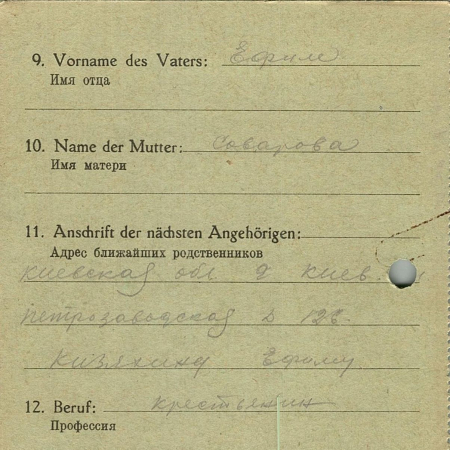 9. Vorname des Vaters: Ефим
Имя отца
10. Name der Mutter: Соварова
Имя матери
11. Anschrift der nächsten Angehörigen:
Адрес ближайших родственников
Киевская обл Киев
петрозаводская Д 126
Ефиму
12. Beruf: крестьянин
Профессия